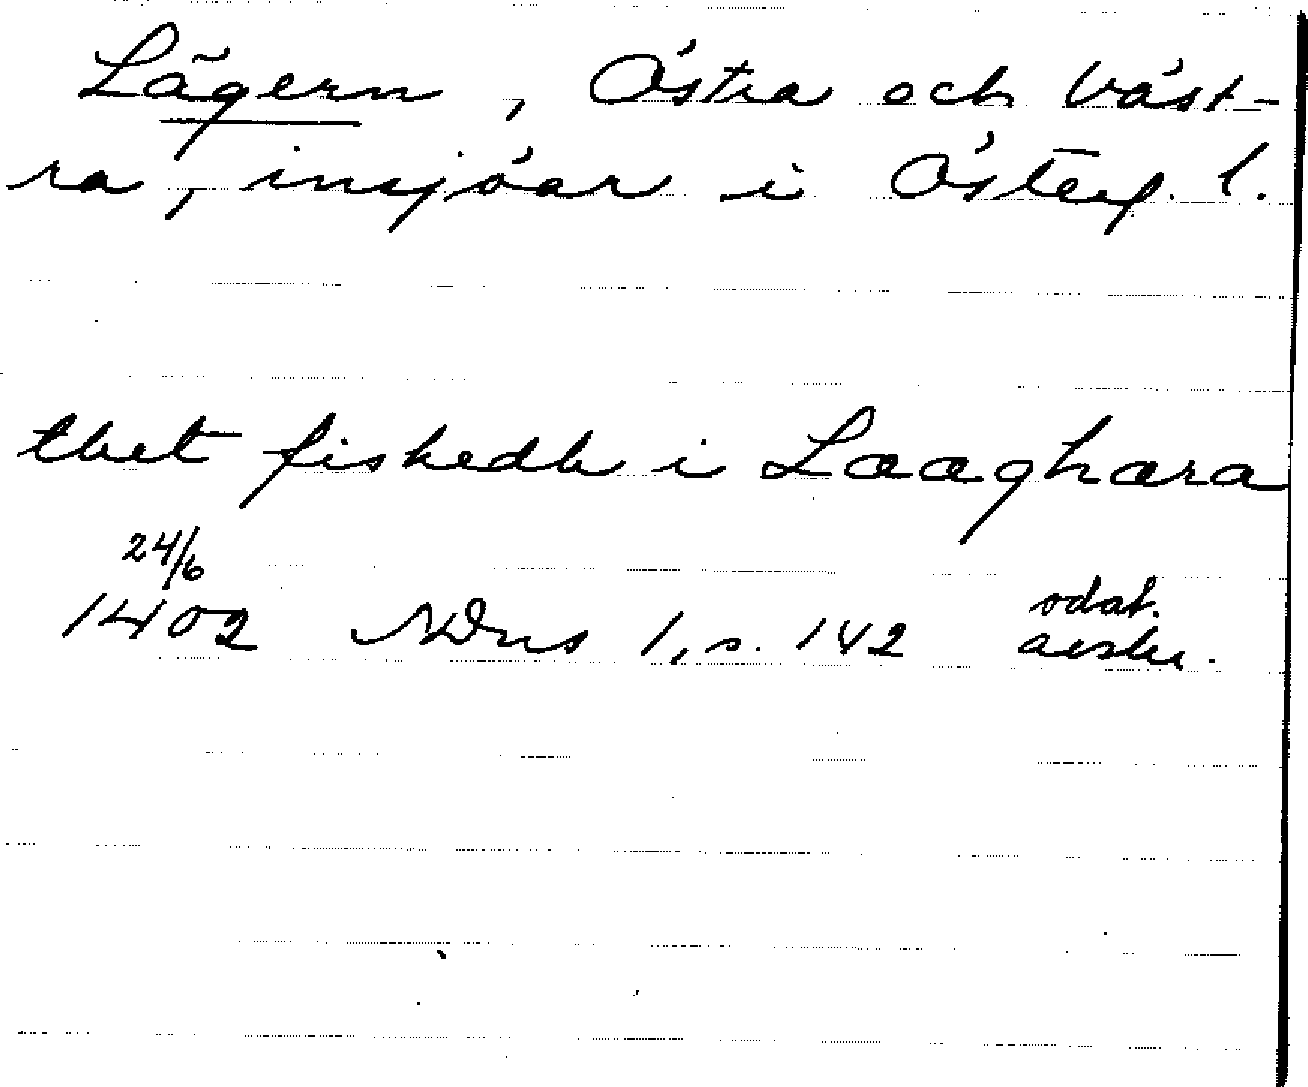 Lägern, Östra och Väst-
ra, insjöar i Österg. l.
thet fiskedh i Lææghæra
24/6
1402 NDns 1, s. 142 odat.
avskr.